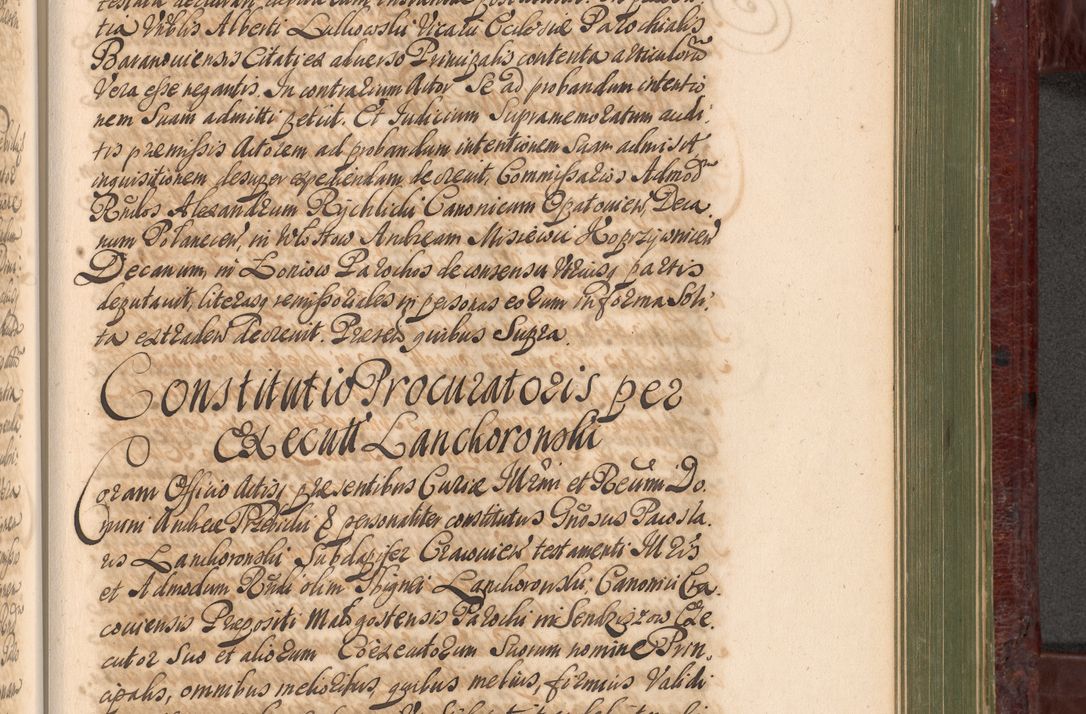 tia Vrblis Alberti Lulkowski Vicarii Ecclesiæ Parochialis
Baranoviensis Citati ex adverso Principalis contenta articulorũ
Vera esse negantis. In contrarium Actor Se ad probandum intentio
nem Suam admitti petiit. Et Iudicium Supramemoratum audi
tis præmissis Actorem ad probandum intentionem Suam admisit
inquisitionem desuper expediendam decrevit, Commissarios Admod
Rñdos Alexandrum Rychlicki Canonicum Opatovien, Deca
num Polancien, in Wlostow Andream Misiewii Koprzywnicen
Decanum, in Loniow Parochos de consensu Utriusq partis
deputavit, literasq remissoriales in personas eorum in forma Soli
ta extraden decrevit. Præsen quibus Supra.
Constitutio Procuratoris per
Executt Lanckoronski
Coram Officio Actisq præsentibus Curiæ Illrmi et Reverm Do
mini Andreæ personaliter constitutus Gnosus Parosla
us Lanckoronski Subdapifer Cracovien testamenti Illris
et Admodum Rndi olim Zbignei Lanckoronski Canonici Cra
coviensis Præpositi Malogostensis Parochi in Sendziszow Exe
cutor Suo et aliorum Coexecutorum Suorum nomine Prin
cipalis, omnibus melioribus, quibus melius, firmius Validi